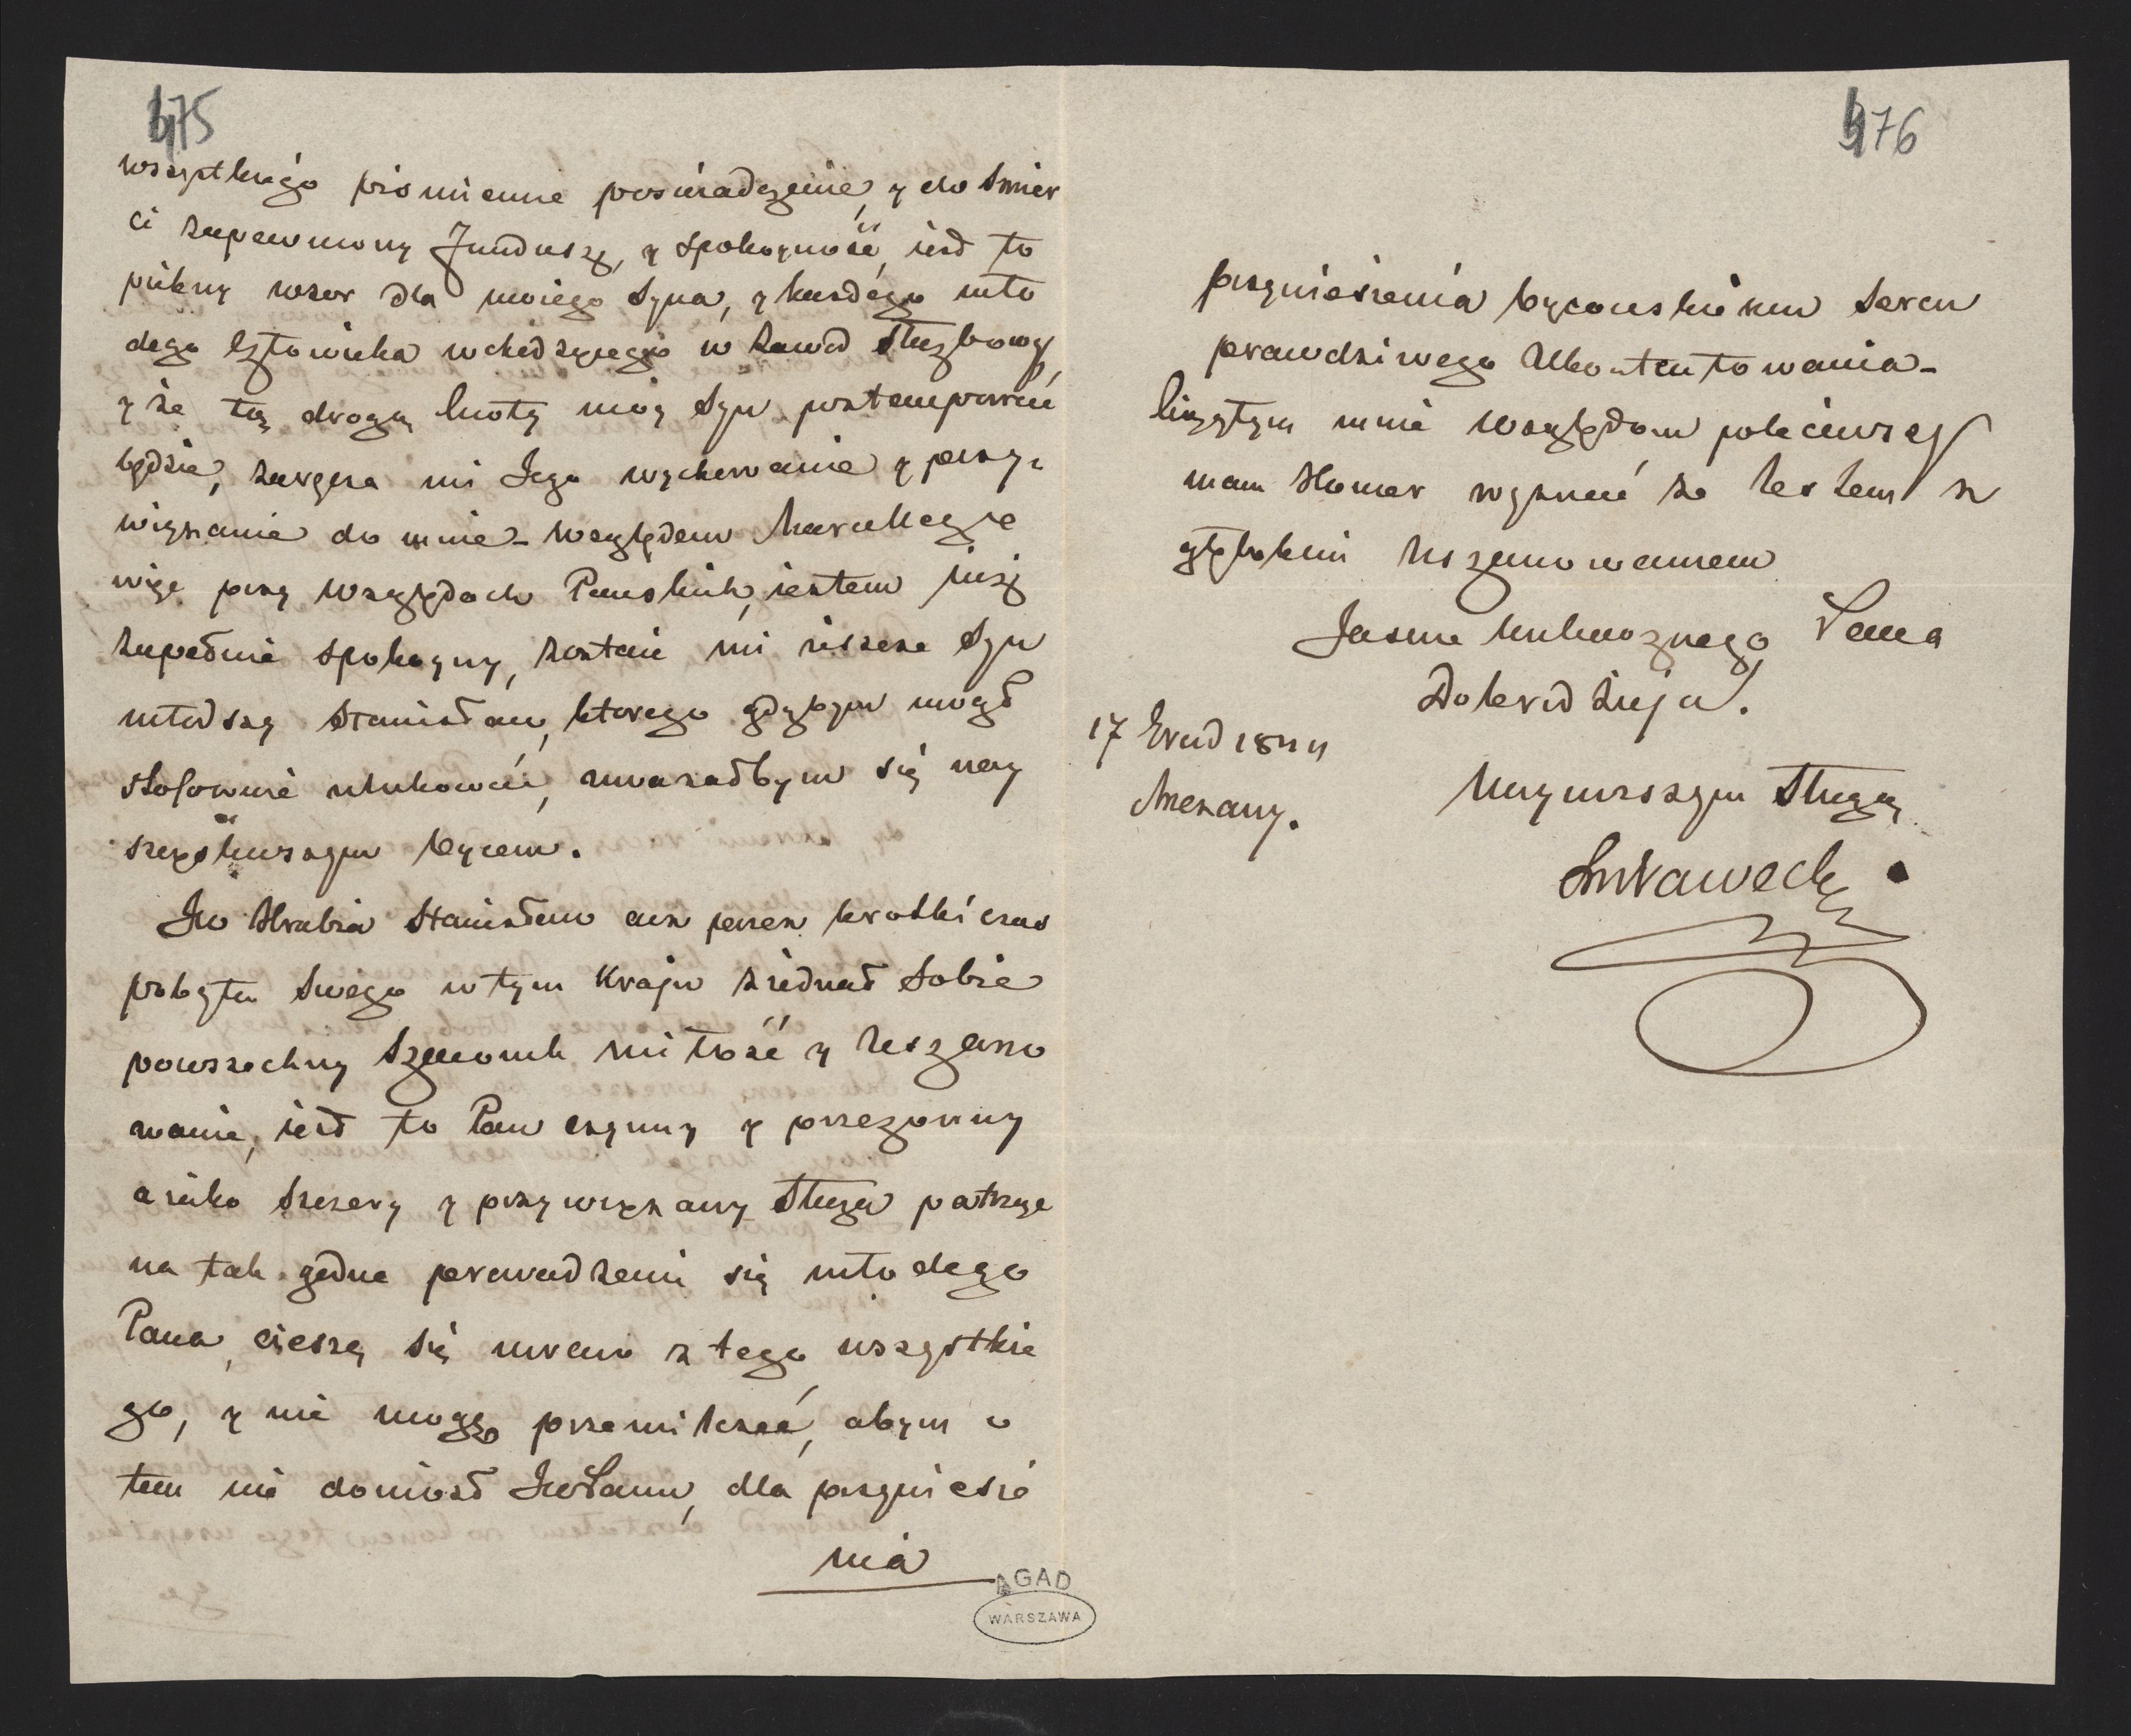 475
wszystkiego piśmienne poswiadczenie, y do smier
ci zapewniony Fundusz, y spokoyność, iest to
piękny wzor dla moiego Syna, y każdego mło
dego człowieka wchodzącego w zawod służbowy,
y że tą drogą cnoty móy Syn postempować
będzie, zaręcza mi Jego wychowanie y przy-
wiązanie do mnie - względem
więc przy względach Panskich, iestem iusz
zupełnie spokoyny, zostaie mi ieszcze Syn
młodszy Stanisław, ktorego gdybym mogł
stosownie ulokować, uważałbym się nay
szczęśliwszym oycem.
JW Hrabia Stanisław acz przez krotki czas
pobytu swego w tym Kraju ziednał sobie
powszechny szacunek miłość y uszano
wanie, iest to Pan czynny y przezorny
a iako szczery y przywiązany sługa patrzę
na tak godne prowadzenie się młodego
Pana, cieszę się mocno z tego wszystkie
go, y nie mogę przemilczeć, abym o
tem nie doniosł JWPanu, dla przyniesie
nia
AGAD
WARSZAWA
476
przyniesienia oycowskiemu sercu
prawdziwego ukontentowania -
względom poleciwszy
mam Honor wyznać że iestem z
głębokim uszanowaniem
Jasnie Wielmożnego Pana
Dobrodzieja.
17 Grud 1844
Nayniższym Sługą